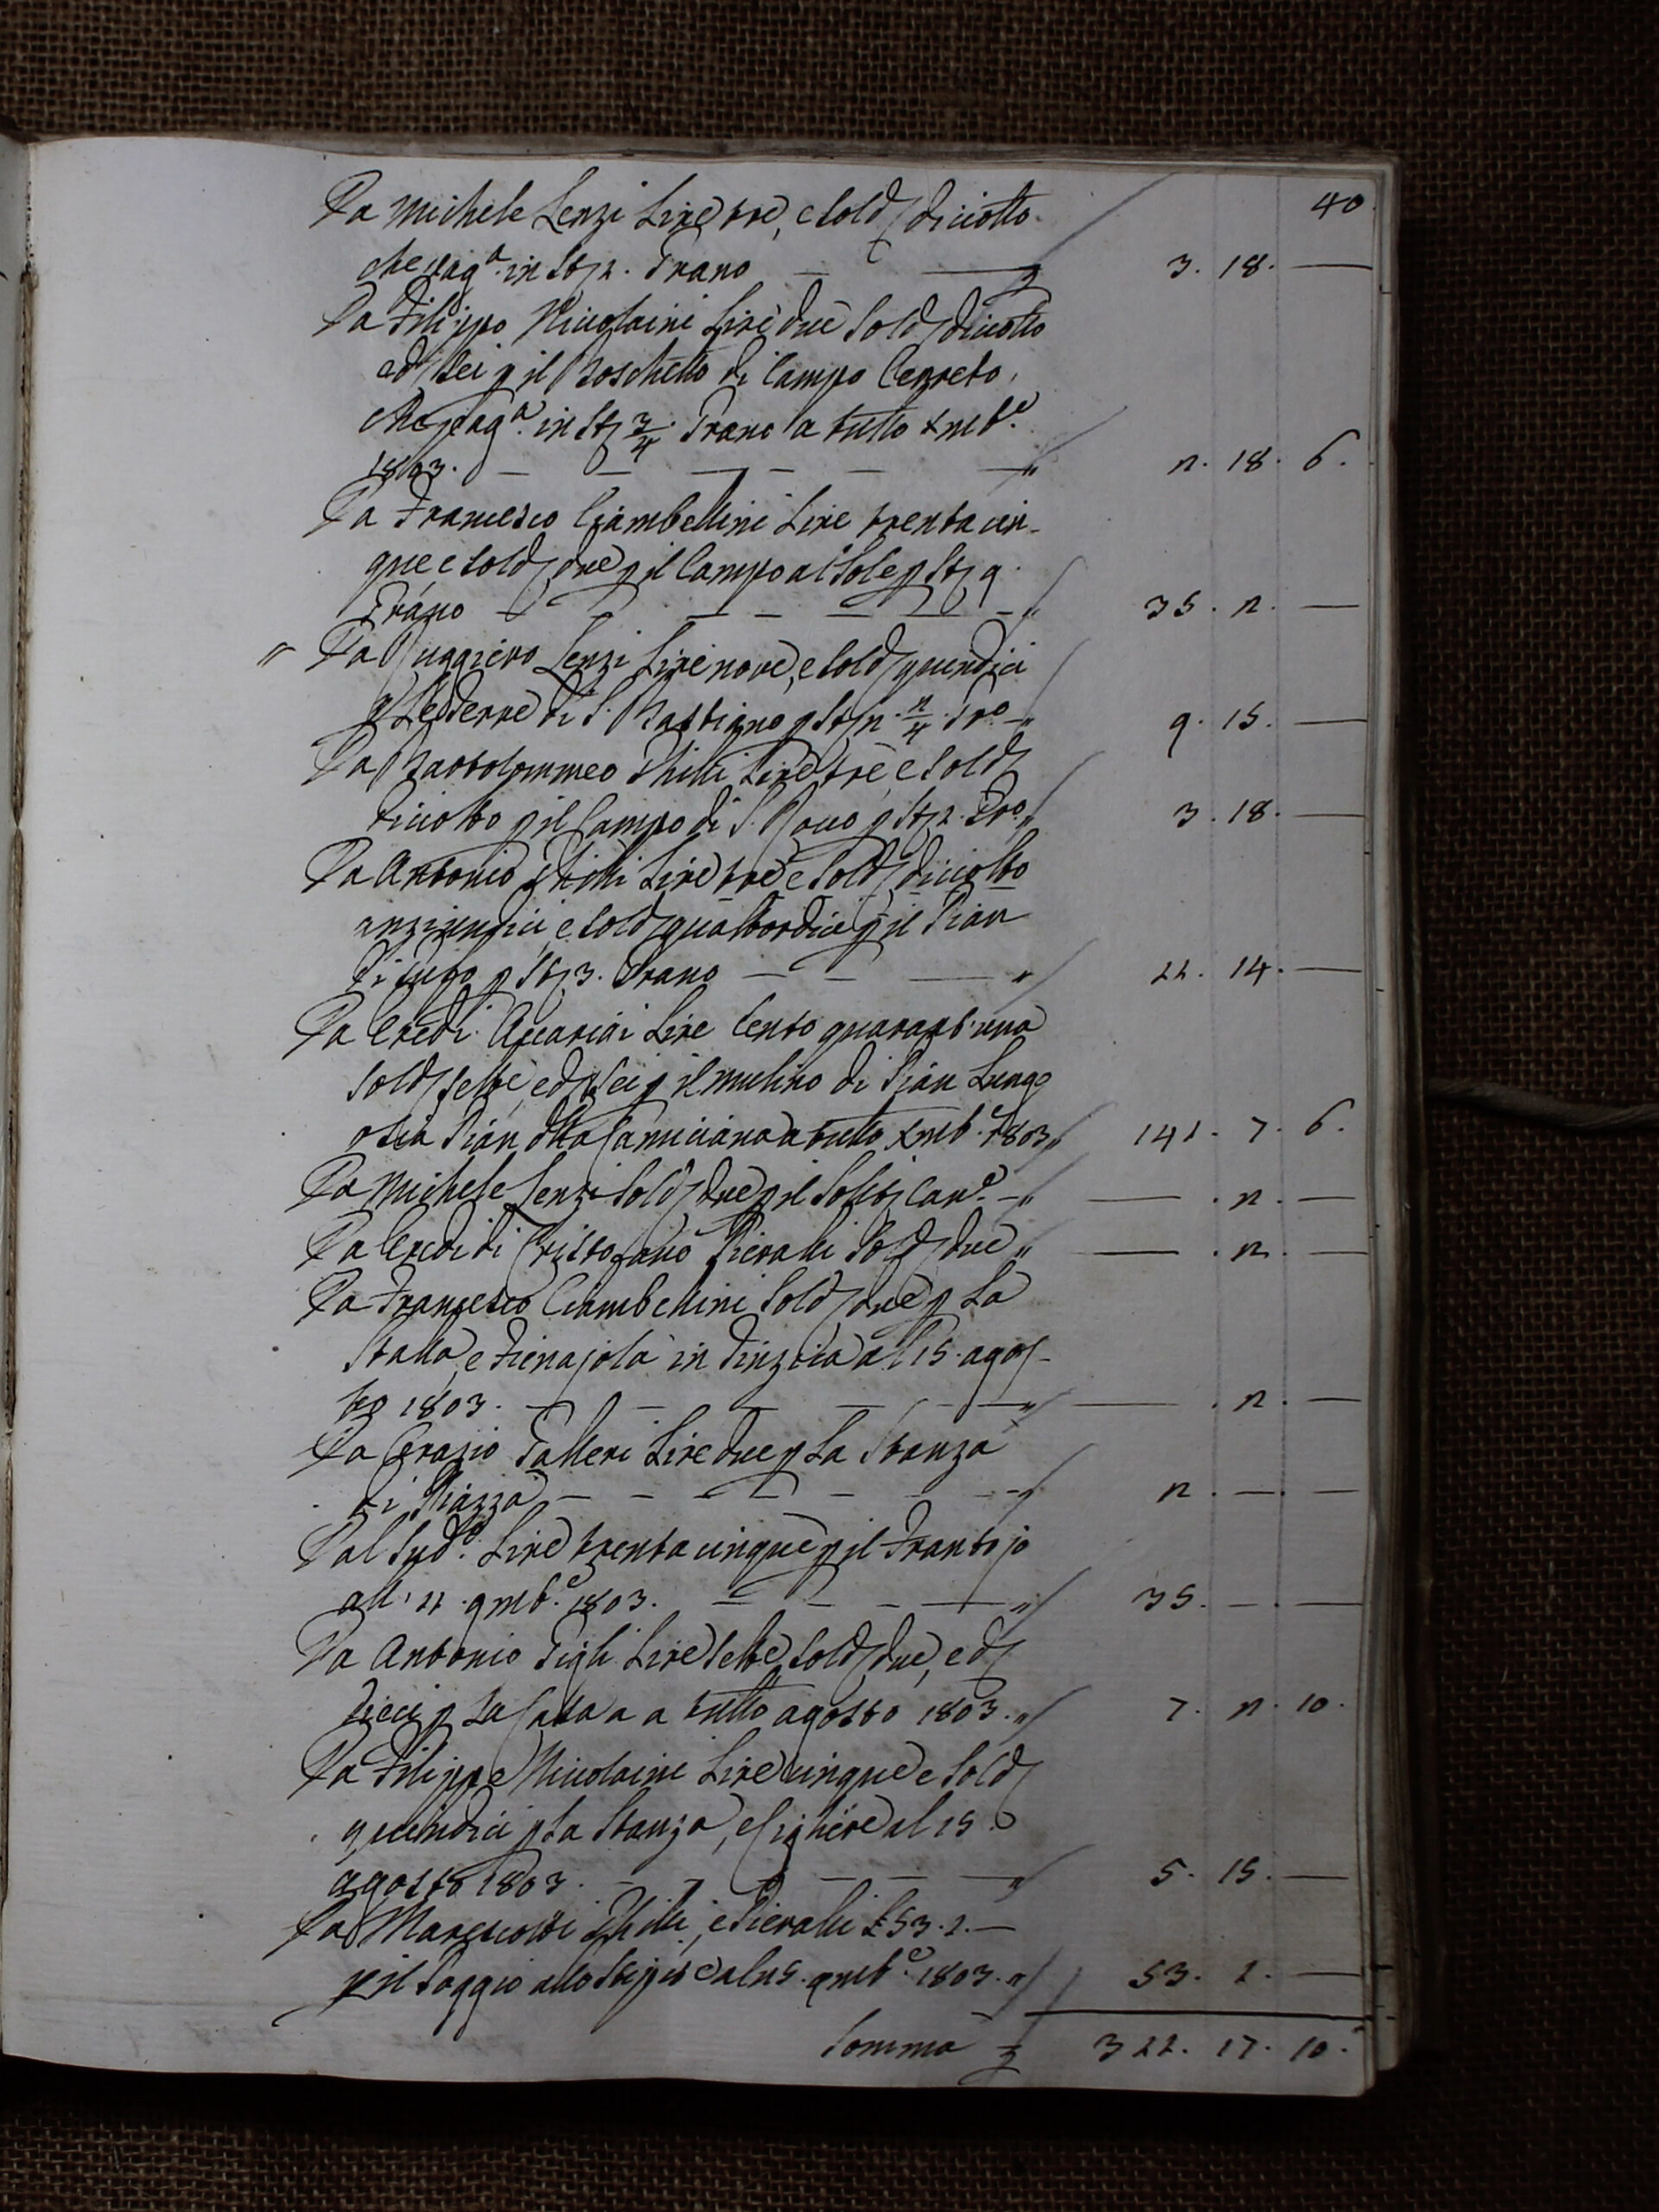 40
Da Michele Lenzi Lire tre, e Sold/ diciotto
che pag.a in St/ 1. Grano — 3. 18. —
Da Filippo Nicolaini Lire due Sold/ diciotto
ed/ Sei p il Boschetto di Campo Cerreto,
che pag.a in St/ 3/4 Grano a tutto Xmb.e
1803. — 2. 18. 6.
Da Francesco Ciambellini Lire trentacin-
que e Sold/ due p il Campo al Sole p St/ 9.
Grano — 35. 2. —
" Da Ruggiero Lenzi Lire nove, e Sold/ quindici
p Le Terre di S. Bastiano p St/ 2. 2/4 Gr.o — 9. 15. —
Da Bartolommeo Ghilli Lire tre e Sold/
diciotto p il Campo di S. Rocco p St/ 1. Gr.o 3. 18. —
Da Antonio Ghilli Lire tre e Sold/ diciotto
anzi undici, e Sold/ quattordici p il Pian
di p St/ 3. Grano — 11. 14. —
Da Eredi Lire Cento quarant'una
Sold/ Sette, ed/ Sei p il Mulino di Pian Lungo
o sia Pian della Camiciana a tutto Xmb.e 1803 " 141. 7. 6.
Da Michele Lenzi Sold/ due p il Solit/ Can.e — . 2. —
Da Eredi di Cristofano Pieralli Sold/ due " — . 2. —
Da Francesco Ciambellini Sold/ due p La
Stalla, e Fienajola in al 15. agos-
to 1803. — . 2. —
Da Orazio Galleri Lire due p La Stanza
di Piazza — 2. — . —
Dal Sud.o Lire trentacinque p il Frantojo
all' 11. 9mb.e 1803. — 35. — . —
Da Antonio Gigli Lire Sette, Sold/ due, e d/
dieci p La Casa a a tutto agosto 1803. " 7. 2. 10.
Da Filippo Nicolaini Lire cinque e Sold/
quindici p La Stanza, e al 15
agosto 1803. — 5. 15. —
Da Marescotti Ghilli, e Pieralli £ 53. 1. —
p il Poggio allo al 25. 9mb.e 1803. " 53. 1. —
Somma 322. 17. 10.